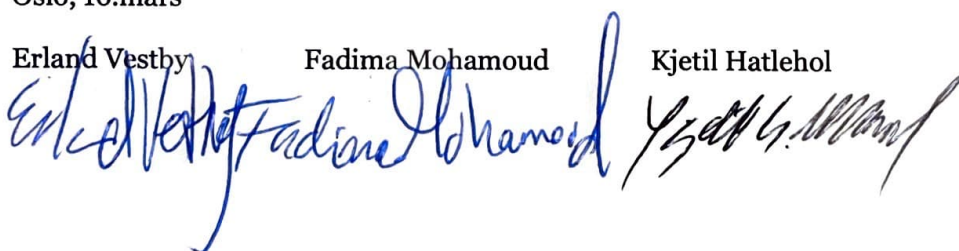 Oslo, 10.mars
Erland Vestby Fadima Mohamoud Kjetil Hatlehol
Erland Vestby Fadima Mohamoud